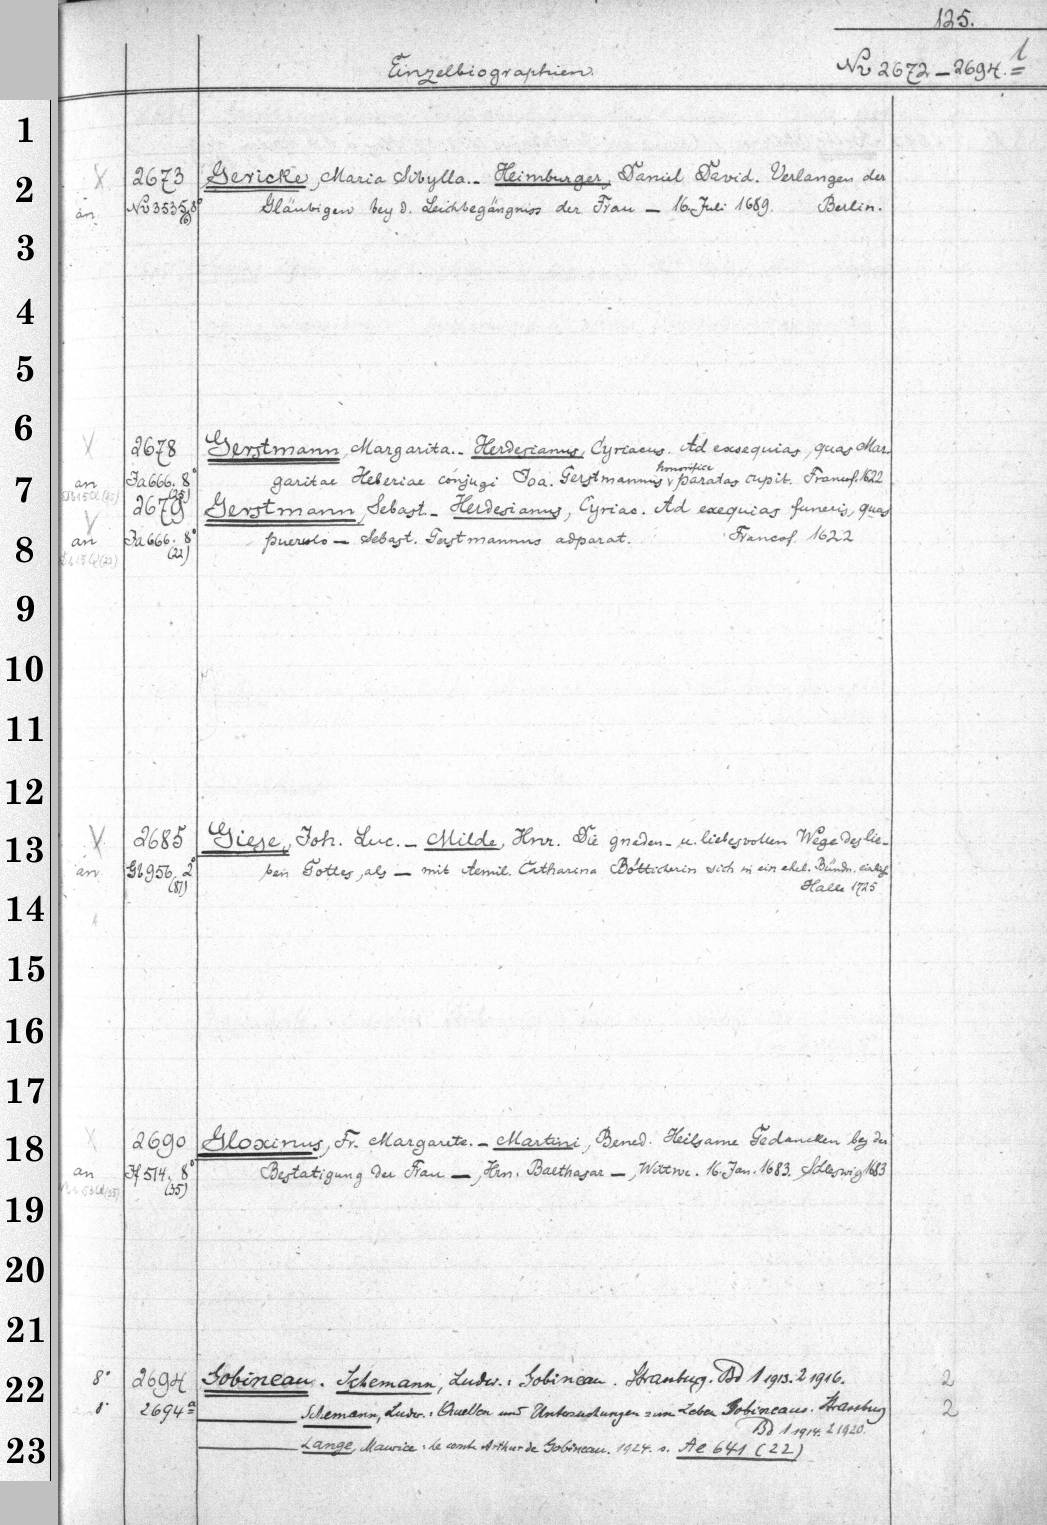 125.
Einzelbiographien.
No 2672 – 2694. 1
1
X 2673 Gericke, Maria Sibylla. – Heimburger, Daniel David. Verlangen der
2
an No 3535, 8° (6) Gläubigen bey d. Leichbegängniss der Frau — 16. Juli 1689. Berlin.
3
4
5
6
X 2678 Gerstmann, Margarita. – Herdesianus, Cyriacus. Ad exsequias, quas Mar-
honorifice
7
an Fa 666. 8° (25) garitae Heberiae conjugi Joa. Gerstmannus paratas cupit. Francof. 1622
2679 Gerstmann, Sebast. – Herdesianus, Cyriac. Ad exequias funeris, quas
8
an Fa 666. 8° (22) puerulo — Sebast. Gerstmannus adparat. Francof. 1622
9
10
11
12
X 2685 Giese, Joh. Luc. – Milde, Hnr. Die gnaden- u. liebesvollen Wege des lie-
13
an Gb 956. 2° (87) ben Gottes, als — mit Aemil. Catharina Bötticherin sich in ein ehel. Bündn.
Halle 1725
14
15
16
17
X 2690 Gloxinus, Fr. Margarete. – Martini, Bened. Heilsame Gedancken bey der
18
an If 514. 8° (35) Bestatigung der Frau —, Hrn. Balthasar —, Wittwe. 16. Jan. 1683. Schleswig 1683
19
20
21
8° 2694 Gobineau. Schemann, Ludw.: Gobineau. Strassburg. Bd 1 1913. 2 1916. 2
22
8° 2694a — Schemann, Ludw.: Quellen und Untersuchungen zum Leben Gobineaus. Strassburg 2
Bd 1 1914. 2 1920.
23
— Lange, Maurice: le comte Arthur de Gobineau. 1924. s. Ae 641 (22)